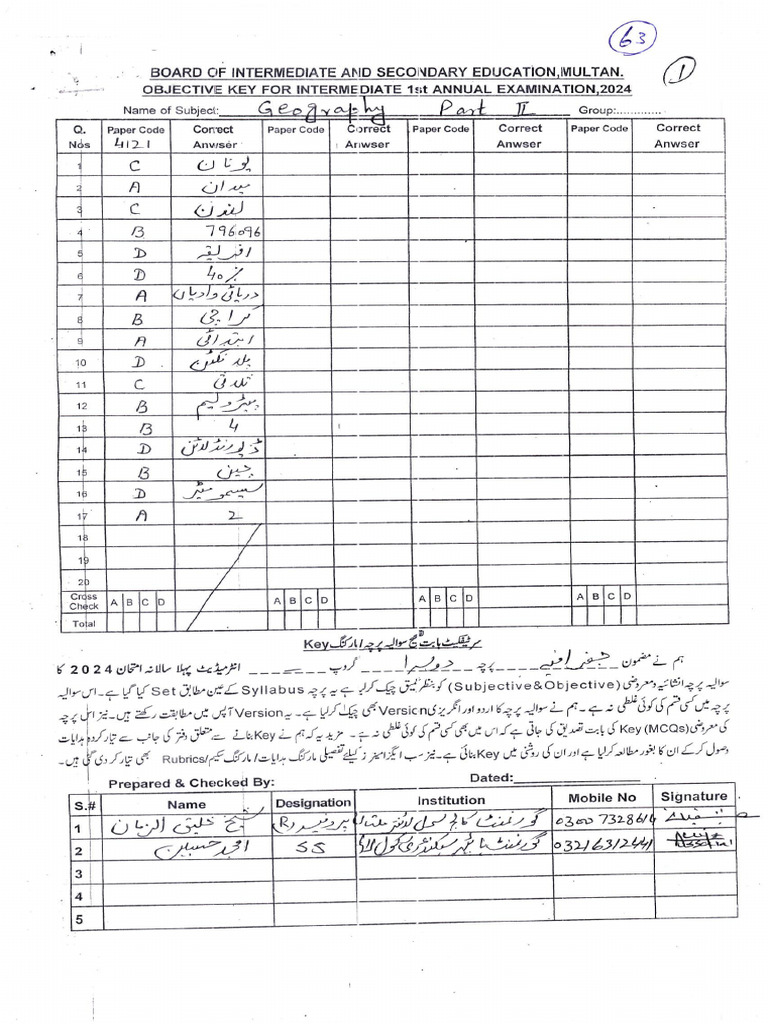 63
1
BOARD OF INTERMEDIATE AND SECONDARY EDUCATION,MULTAN.
OBJECTIVE KEY FOR INTERMEDIATE 1st ANNUAL EXAMINATION,2024
Name of Subject: Geography Part II Group:.............
Q. Nos Paper Code 4121 Correct Anwser Paper Code Correct Anwser Paper Code Correct Anwser Paper Code Correct Anwser
1 C یونان
2 A میدان
3 C لندن
4 B 796096
5 D افریقہ
6 D 40%
7 A دریائی وادیاں
8 B کراچی
9 A ابتدائی
10 D
11 C
12 B پیٹرولیم
13 B 4
14 D ڈیورنڈ لائن
15 B چین
16 D سیسمومیٹر
17 A 2
18
19
20
Cross Check A B C D A B C D A B C D A B C D
Total
سرٹیفکیٹ بابت تصحیح سوالیہ پرچہ / مارکنگ Key
ہم نے مضمون جغرافیہ پرچہ دوسرا گروپ انٹرمیڈیٹ پہلا سالانہ امتحان 2024 کا
سوالیہ پرچہ انشائیہ ومعروضی (Subjective&Objective) کو بنظر عمیق چیک کرلیا ہے یہ پرچہ Syllabus کے عین مطابق Set کیا گیا ہے۔ اس سوالیہ
پرچہ میں کسی قسم کی کوئی غلطی نہ ہے۔ ہم نے سوالیہ پرچہ کا اردو اور انگریزی Version بھی چیک کرلیا ہے۔ یہ Version آپس میں مطابقت رکھتے ہیں۔ نیز اس پرچہ
کی معروضی (MCQs) Key کی بابت تصدیق کی جاتی ہے کہ اس میں بھی کسی قسم کی کوئی غلطی نہ ہے۔ مزید یہ کہ ہم نے Key بنانے سے متعلق دفتر کی جانب سے تیار کردہ ہدایات
وصول کرکے ان کا بغور مطالعہ کرلیا ہے اور ان کی روشنی میں Key بنائی ہے۔ نیز سب ایگزامینرز کیلئے تفصیلی مارکنگ ہدایات / مارکنگ سکیم / Rubrics بھی تیار کر دی گئی ہیں۔
Prepared & Checked By: Dated:
S.# Name Designation Institution Mobile No Signature
1 شیخ خلیق الزمان پروفیسر (R) گورنمنٹ کالج سول لائنز ملتان 0300 7328614
2 امجد حسین SS گورنمنٹ ہائر سیکنڈری سکول 03216312441
3
4
5